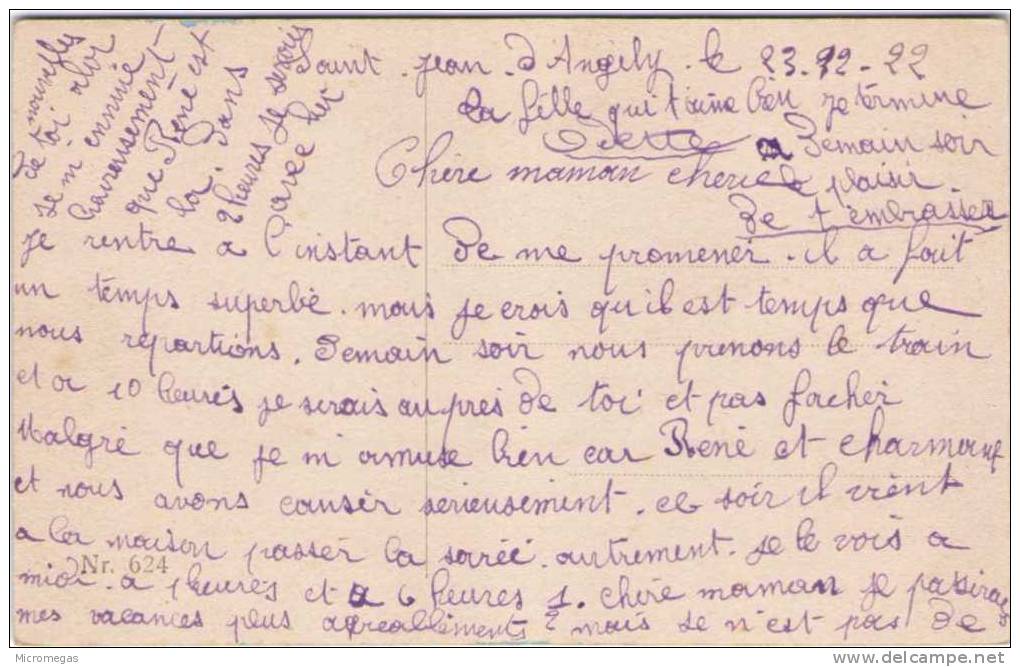 Saint. Jean. d'Angely. le 23.12-22
Chère maman cherie
Je rentre a l'instant de me promener. il a fait
un temps superbe. mais je crois qu'il est temps que
nous repartions. Demain soir nous prenons le train
et a 10 heures je serais au pres de toi et pas facher
Malgré que je m amuse bien car René et charmant
et nous avons causer serieusement. ce soir il vient
a la maison passer la soirée. autrement. je le vois a
midi. a 1 heures et a 6 heures 1/2. chère maman je passerai
mes vacances plus agreablements mais se n'est pas de
de nouvelles
de toi alor
je m ennuie
heureusement
que René est
la. Dans
2 heures je serais
avec lui
la fille qui t'aime bien je termine
Odette a Demain soir
le plaisir.
de t embrasser
Nr. 624
Micromegas
delcampe.net